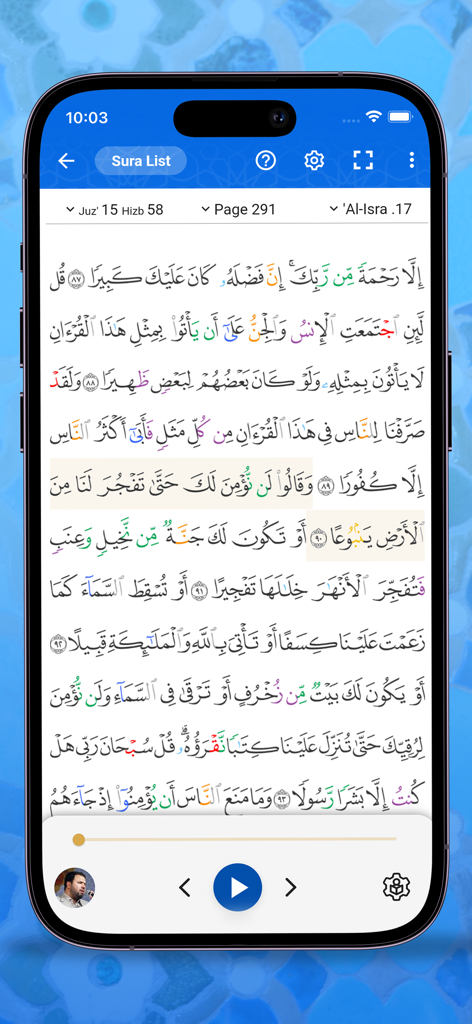 10:03
Sura List
Juz' 15 Hizb 58
Page 291
'Al-Isra .17
إِلَّا رَحْمَةً مِّن رَّبِّكَ ۚ إِنَّ فَضْلَهُۥ كَانَ عَلَيْكَ كَبِيرًا ٨٧ قُل
لَّئِنِ ٱجْتَمَعَتِ ٱلْإِنسُ وَٱلْجِنُّ عَلَىٰٓ أَن يَأْتُوا۟ بِمِثْلِ هَـٰذَا ٱلْقُرْءَانِ
لَا يَأْتُونَ بِمِثْلِهِۦ وَلَوْ كَانَ بَعْضُهُمْ لِبَعْضٍ ظَهِيرًا ٨٨ وَلَقَدْ
صَرَّفْنَا لِلنَّاسِ فِى هَـٰذَا ٱلْقُرْءَانِ مِن كُلِّ مَثَلٍ فَأَبَىٰٓ أَكْثَرُ ٱلنَّاسِ
إِلَّا كُفُورًا ٨٩ وَقَالُوا۟ لَن نُّؤْمِنَ لَكَ حَتَّىٰ تَفْجُرَ لَنَا مِنَ
ٱلْأَرْضِ يَنۢبُوعًا ٩٠ أَوْ تَكُونَ لَكَ جَنَّةٌ مِّن نَّخِيلٍ وَعِنَبٍ
فَتُفَجِّرَ ٱلْأَنْهَـٰرَ خِلَـٰلَهَا تَفْجِيرًا ٩١ أَوْ تُسْقِطَ ٱلسَّمَآءَ كَمَا
زَعَمْتَ عَلَيْنَا كِسَفًا أَوْ تَأْتِىَ بِٱللَّهِ وَٱلْمَلَـٰٓئِكَةِ قَبِيلًا ٩٢
أَوْ يَكُونَ لَكَ بَيْتٌ مِّن زُخْرُفٍ أَوْ تَرْقَىٰ فِى ٱلسَّمَآءِ وَلَن نُّؤْمِنَ
لِرُقِيِّكَ حَتَّىٰ تُنَزِّلَ عَلَيْنَا كِتَـٰبًا نَّقْرَؤُهُۥ ۗ قُلْ سُبْحَانَ رَبِّى هَلْ
كُنتُ إِلَّا بَشَرًا رَّسُولًا ٩٣ وَمَا مَنَعَ ٱلنَّاسَ أَن يُؤْمِنُوٓا۟ إِذْ جَآءَهُمُ